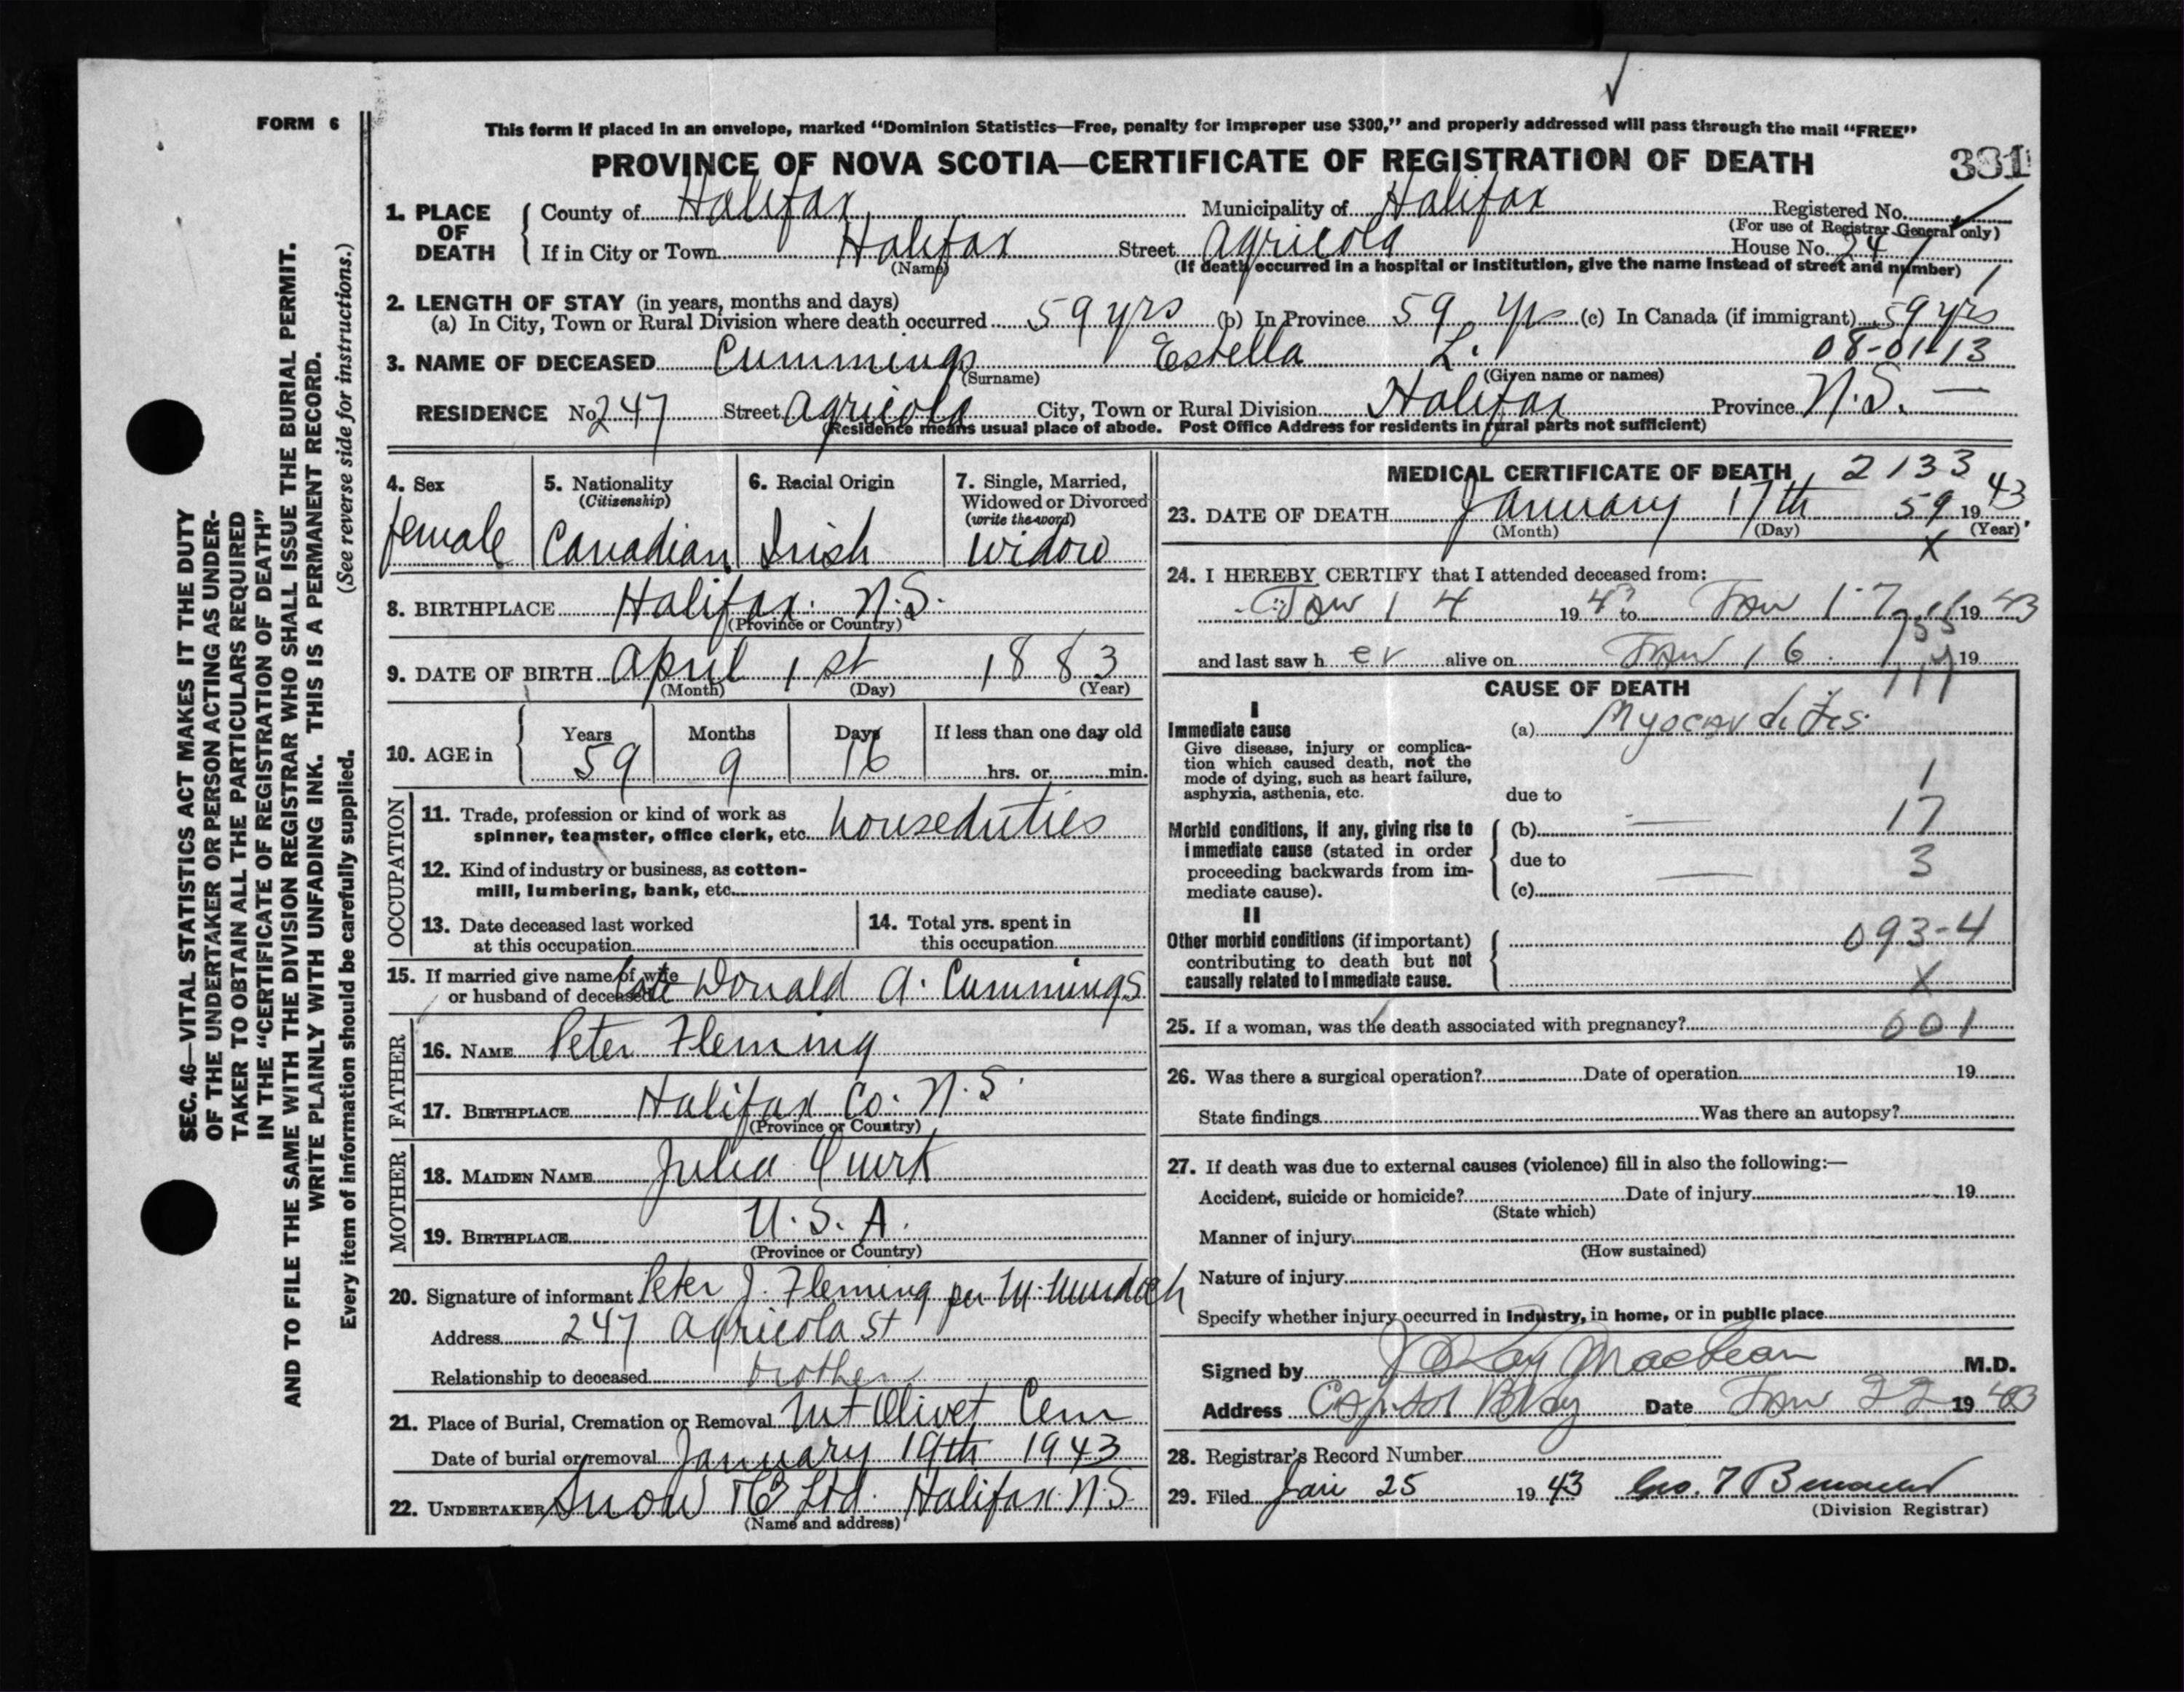 FORM 6
This form if placed in an envelope, marked “Dominion Statistics—Free, penalty for improper use $300,” and properly addressed will pass through the mail “FREE”
PROVINCE OF NOVA SCOTIA—CERTIFICATE OF REGISTRATION OF DEATH
331
1. PLACE OF DEATH
County of Halifax Municipality of Halifax Registered No.
(For use of Registrar General only)
If in City or Town Halifax Street Agricola House No. 247
(Name) (If death occurred in a hospital or institution, give the name instead of street and number)
2. LENGTH OF STAY (in years, months and days)
(a) In City, Town or Rural Division where death occurred 59 yrs (b) In Province 59 yrs (c) In Canada (if immigrant) 59 yrs
3. NAME OF DECEASED Cummings Estella L. 08-01-13
(Surname) (Given name or names)
RESIDENCE No 247 Street Agricola City, Town or Rural Division Halifax Province N.S. —
(Residence means usual place of abode. Post Office Address for residents in rural parts not sufficient)
4. Sex 5. Nationality 6. Racial Origin 7. Single, Married,
(Citizenship) Widowed or Divorced
(write the word)
female Canadian Irish widow
8. BIRTHPLACE Halifax. N.S.
(Province or Country)
9. DATE OF BIRTH April 1st 1883
(Month) (Day) (Year)
10. AGE in Years Months Days If less than one day old
59 9 16 hrs. or min.
OCCUPATION
11. Trade, profession or kind of work as
spinner, teamster, office clerk, etc. houseduties
12. Kind of industry or business, as cotton-
mill, lumbering, bank, etc.
13. Date deceased last worked
at this occupation
14. Total yrs. spent in
this occupation
15. If married give name of wife
or husband of deceased late Donald A. Cummings
FATHER
16. NAME Peter Fleming
17. BIRTHPLACE Halifax Co. N.S.
(Province or Country)
MOTHER
18. MAIDEN NAME Julia Quirk
19. BIRTHPLACE U.S.A.
(Province or Country)
20. Signature of informant Peter J. Fleming per M. Murdoch
Address 247 Agricola St
Relationship to deceased brother
21. Place of Burial, Cremation or Removal Mt Olivet Cem
Date of burial or removal January 19th 1943
22. UNDERTAKER Snow & Co Ltd. Halifax N.S.
(Name and address)
MEDICAL CERTIFICATE OF DEATH 2133
23. DATE OF DEATH January 17th 59 1943
(Month) (Day) (Year)
X
24. I HEREBY CERTIFY that I attended deceased from:
Jan 14 1943 to Jan 17 1943
and last saw her alive on Jan 16 19
CAUSE OF DEATH
I
Immediate cause (a) Myocarditis
Give disease, injury or complica-
tion which caused death, not the
mode of dying, such as heart failure,
asphyxia, asthenia, etc. due to
1
Morbid conditions, if any, giving rise to (b) — 17
immediate cause (stated in order due to 3
proceeding backwards from im-
mediate cause). (c) —
II
Other morbid conditions (if important) 093-4
contributing to death but not
causally related to immediate cause. X
25. If a woman, was the death associated with pregnancy? 001
26. Was there a surgical operation? Date of operation 19
State findings Was there an autopsy?
27. If death was due to external causes (violence) fill in also the following:—
Accident, suicide or homicide? Date of injury 19
(State which)
Manner of injury
(How sustained)
Nature of injury
Specify whether injury occurred in industry, in home, or in public place
Signed by MacLean M.D.
Address Capitol Bldg Date Jan 22 1943
28. Registrar's Record Number
29. Filed Jan 25 1943 Geo. F
(Division Registrar)
SEC. 46—VITAL STATISTICS ACT MAKES IT THE DUTY
OF THE UNDERTAKER OR PERSON ACTING AS UNDER-
TAKER TO OBTAIN ALL THE PARTICULARS REQUIRED
IN THE “CERTIFICATE OF REGISTRATION OF DEATH”
AND TO FILE THE SAME WITH THE DIVISION REGISTRAR WHO SHALL ISSUE THE BURIAL PERMIT.
WRITE PLAINLY WITH UNFADING INK. THIS IS A PERMANENT RECORD.
Every item of information should be carefully supplied. (See reverse side for instructions.)